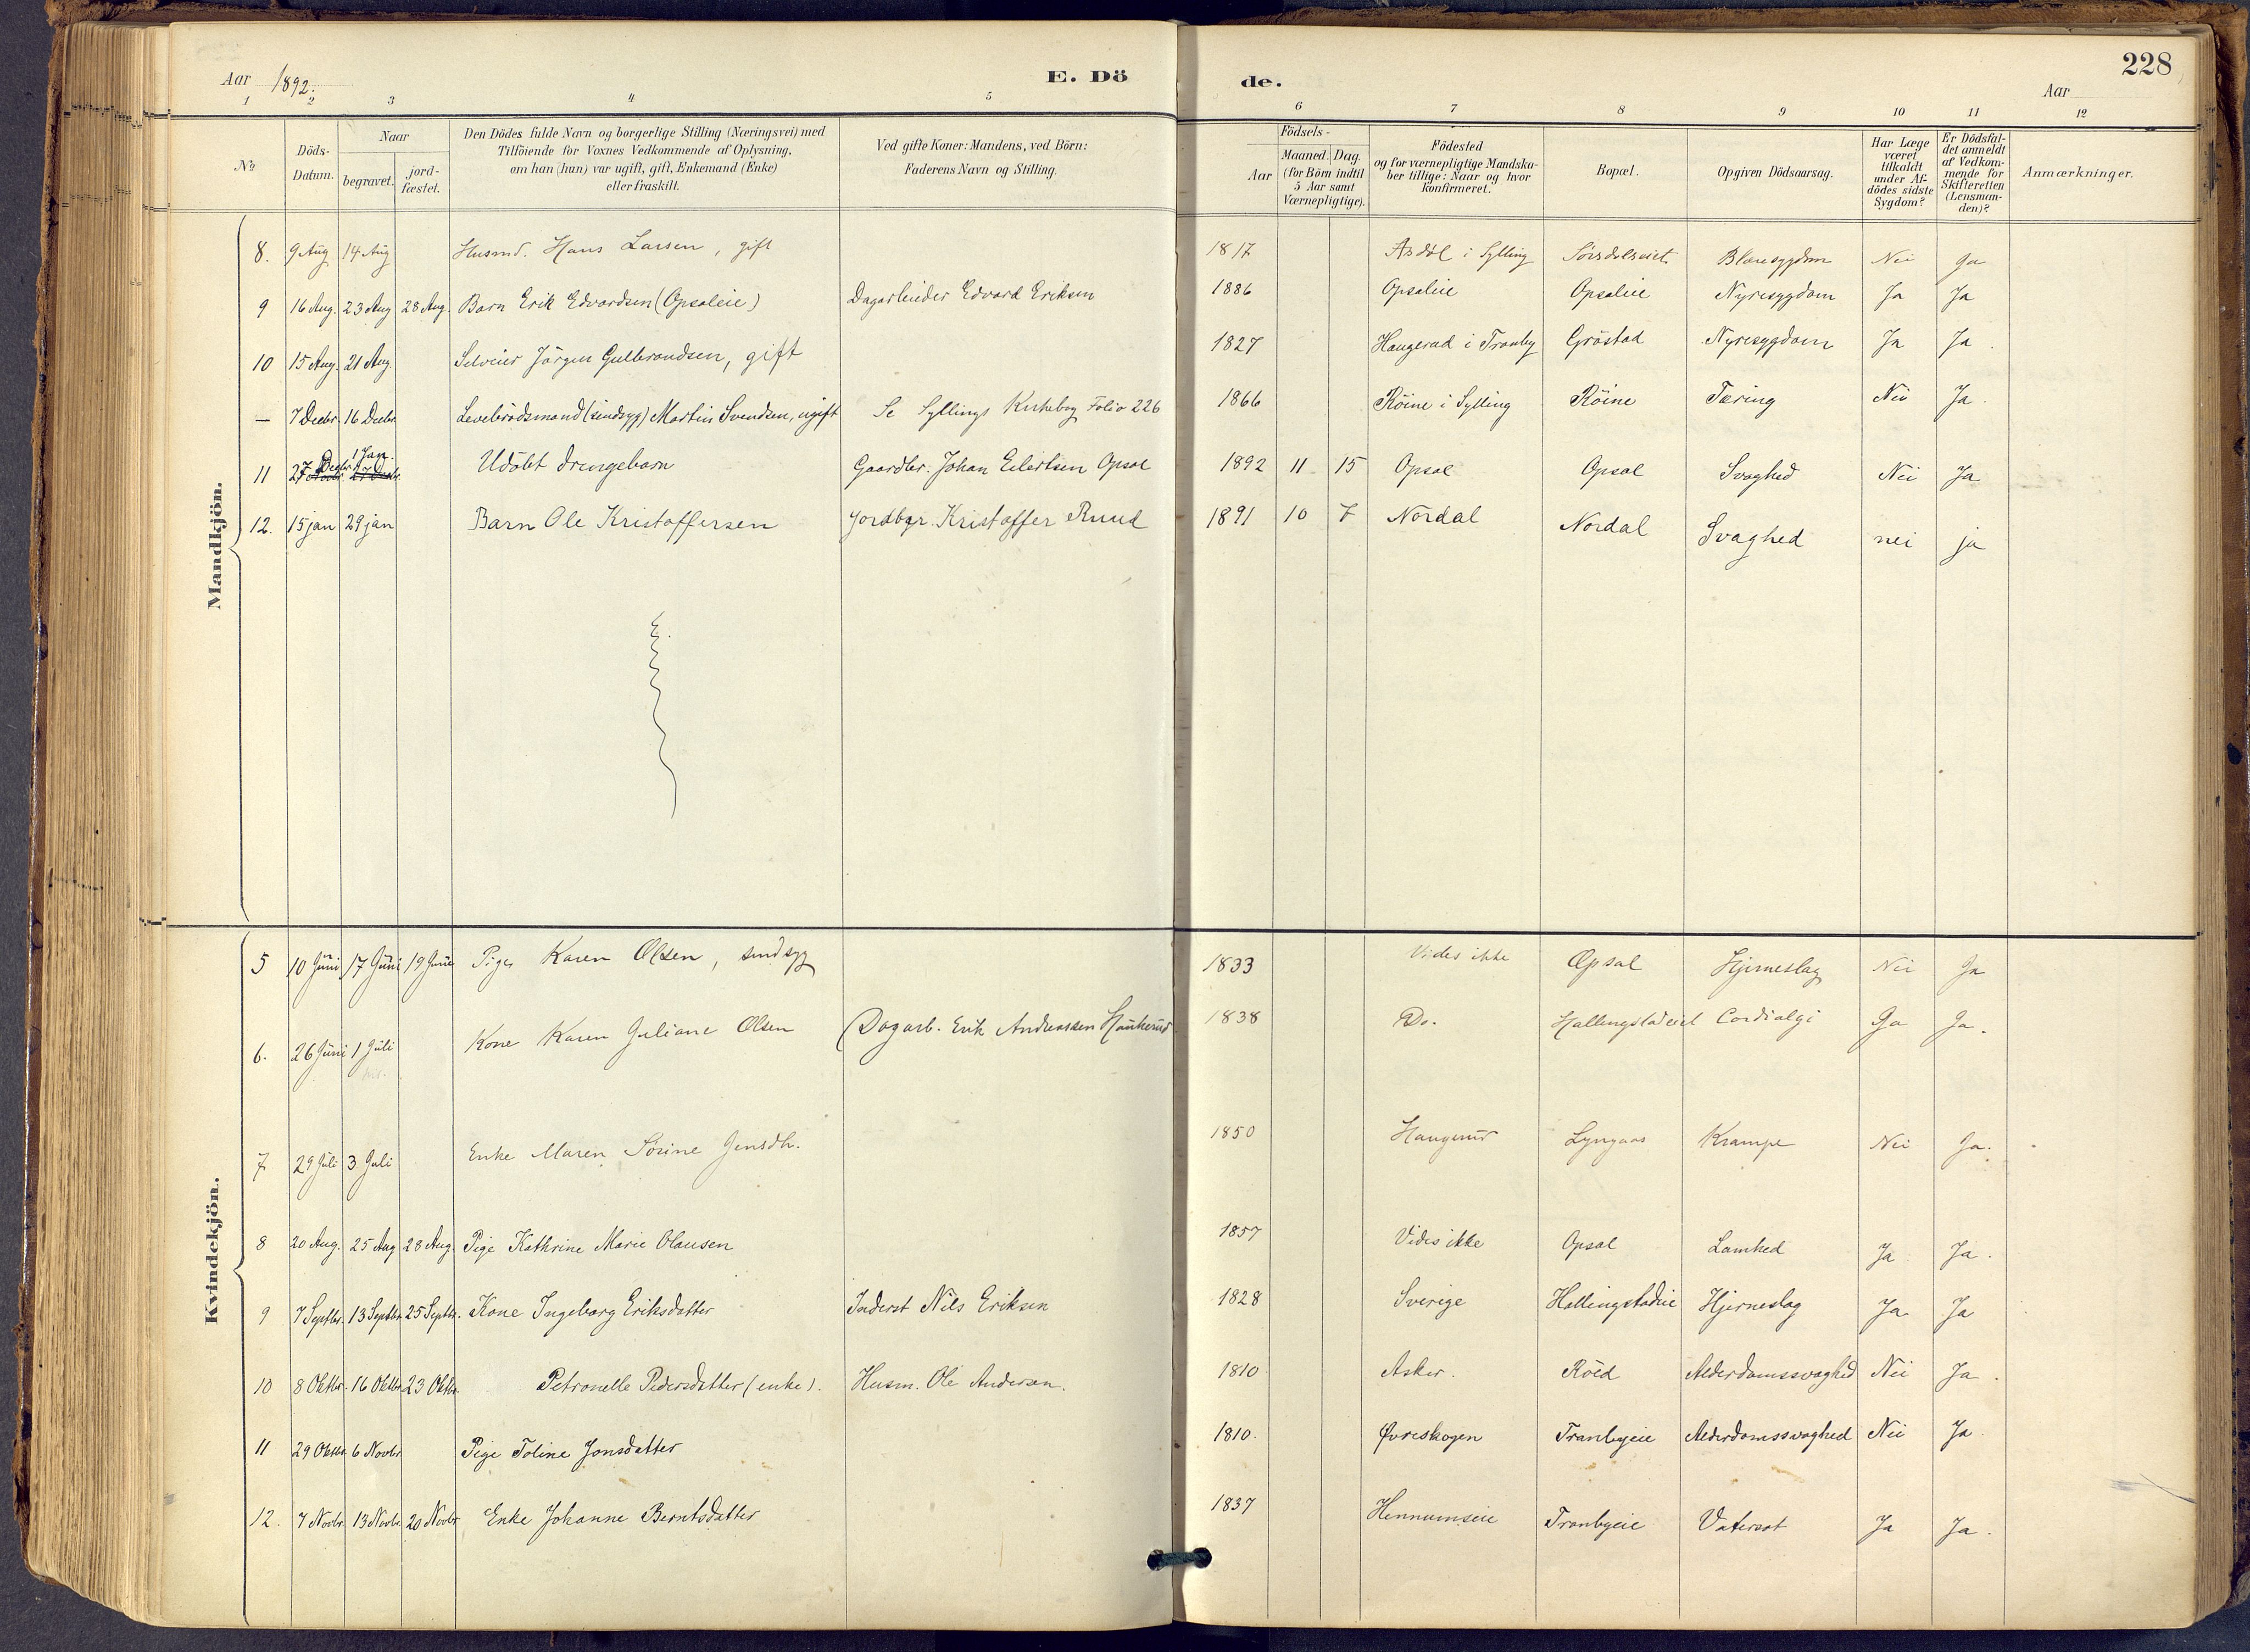 228
Aar 1892. E. Dö de. Aar
1 2 3 4 5 6 7 8 9 10 11 12
No
Döds-
Datum.
Naar
begravet.
jord-
fæstet.
Den Dödes fulde Navn og borgerlige Stilling (Næringsvei) med
Tilföiende for Voxnes Vedkommende af Oplysning,
om han (hun) var ugift, gift, Enkemand (Enke)
eller fraskilt.
Ved gifte Koner: Mandens, ved Börn:
Faderens Navn og Stilling.
Födsels-
Aar
Maaned. Dag.
(for Börn indtil
5 Aar samt
Værnepligtige).
Födested
og for værnepligtige Mandska-
ber tillige: Naar og hvor
konfirmeret.
Bopæl.
Opgiven Dödsaarsag.
Har Læge
været
tilkaldt
under Af-
dödes sidste
Sygdom?
Er Dödsfal-
det anmeldt
af Vedkom-
mende for
Skifteretten
(Lensman-
den)?
Anmærkninger.
Mandkjön.
8. 9 Aug 14 Aug Husmd. Hans Larsen, gift 1817 Asdøl i Sylling Blæresygdom Nei Ja
9 16 Aug. 23 Aug 28 Aug. Barn Erik Edvardsen (Opsaleie) Dagarbeider Edvard Eriksen 1886 Opsaleie Opsaleie Nyresygdom Ja Ja
10 15 Aug. 21 Aug. Selveier Jörgen Gulbrandsen, gift 1827 Haugerud i Tranby Gröstad Nyresygdom Ja Ja.
— 7 Decbr. 16 Decbr. Levebrödsmand (sindsyg) Martin Svendsen, ugift Se Syllings Kirkebog Folio 226 1866 Röine i Sylling Röine Tæring Nei Ja.
11 27 Decbr. 1 Jan. Udöbt drengebarn Gaardbr. Johan Eilertsen Opsal 1892 11 15 Opsal Opsal Svaghed Nei Ja
12. 15 jan 29 jan Barn Ole Kristoffersen jordbgr. Kristoffer Ruud 1891 10 7 Nordal Nordal Svaghed nei ja
Kvindekjön.
5 10 Juni 17 Juni 19 Juni Pige Karen Olsen, sindsyg 1833 Vides ikke Opsal Hjerneslag Nei Ja
6. 26 Juni 1 Juli Kone Karen Juliane Olsen Dagarb. Erik Andreassen Haukerud 1838 Do. Hallingstadeiet Cordialgi Ja Ja.
7 29 Juli 3 Juli Enke Maren Sörine Jensdtr. 1850 Haugerud Lyngaas Krampe Nei Ja.
8 20 Aug. 25 Aug 28 Aug. Pige Kathrine Marie Olausen 1857 Vides ikke Opsal Lamhed Ja Ja.
9 7 Septbr. 13 Septbr. 25 Septbr. Kone Ingeborg Eriksdatter Inderst Nils Eriksen 1828 Sverige Hallingstadeie Hjerneslag Ja Ja
10 8 Oktbr. 16 Oktbr. 23 Oktbr. Petronelle Pedersdatter (enke). Husm. Ole Andersen. 1810 Asker. Röed Alderdomssvaghed Nei Ja.
11 29 Oktbr. 6 Novbr. Pige Toline Jonsdatter 1810. Øvreskogen Tranbyeie Alderdomssvaghed Nei Ja
12. 7 Novbr. 13 Novbr. 20 Novbr. Enke Johanne Berntsdatter 1837 Hennumseie Tranbyeie Vatersot Ja Ja.